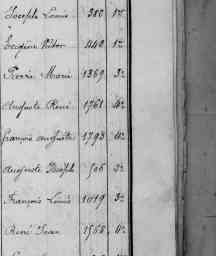 Joseph Louis 280 1re
Eugène Victor 440 1re
Pierre Marie 1369 3e
Auguste René 1761 4e
François Auguste 1793 4e
Auguste Joseph 506 2e
François Louis 1019 3e
René Jean 1568 4e